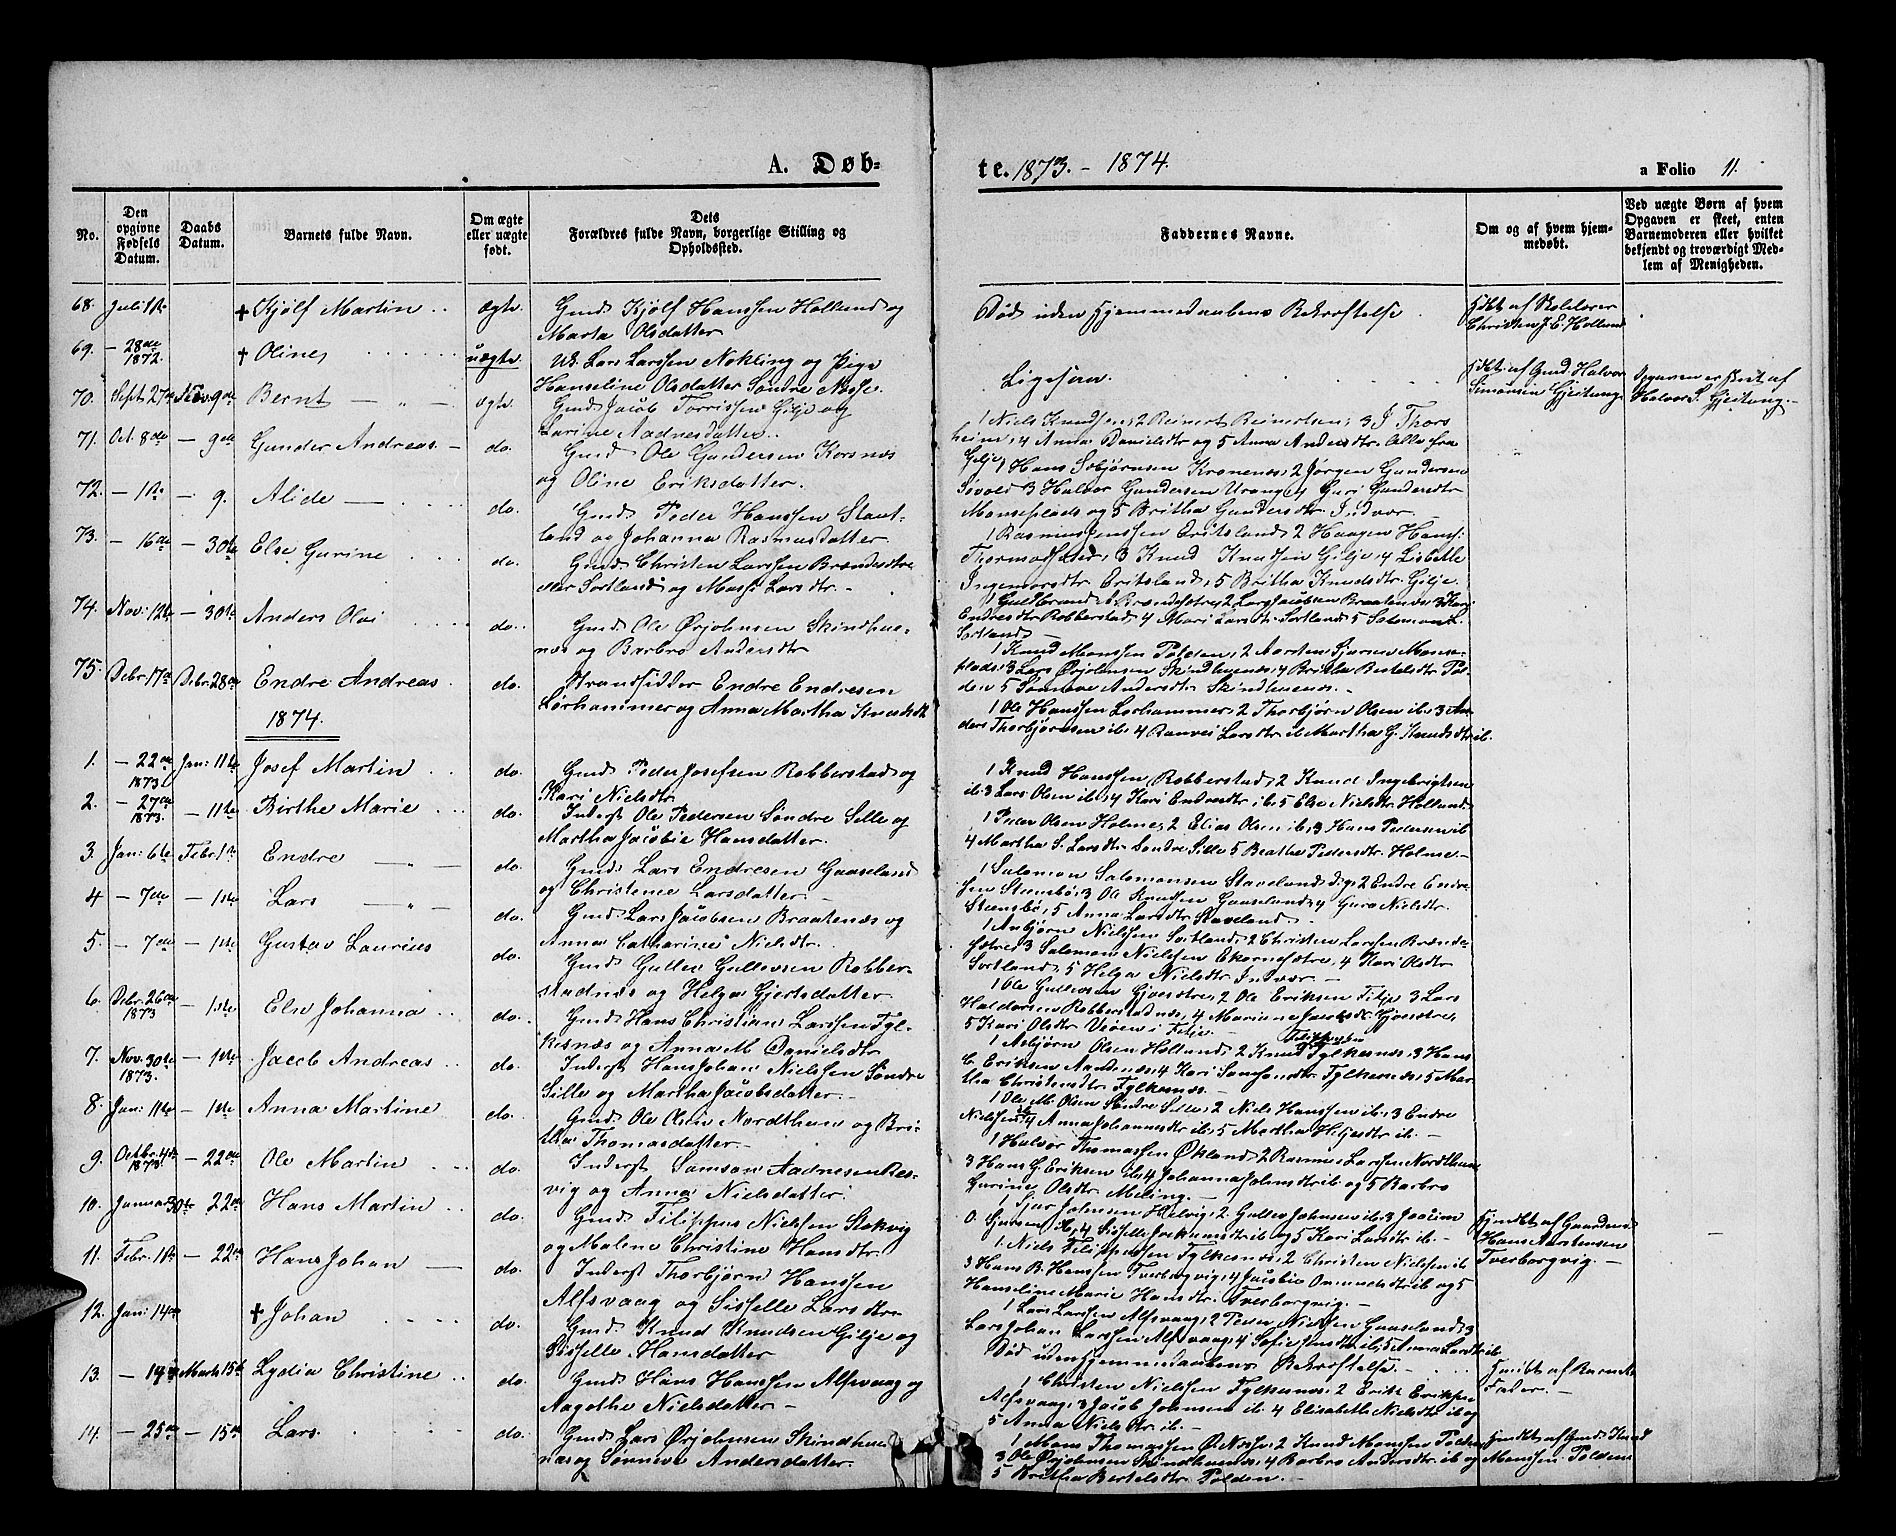 A. Døb-
te. 1873. - 1874.
a Folio 11.
No.
Den opgivne Fødsels Datum.
Daabs Datum.
Barnets fulde Navn.
Om ægte eller uægte født.
Dets Forældres fulde Navn, borgerlige Stilling og Opholdssted.
Faddernes Navne.
Om og af hvem hjemmedøbt.
Ved uægte Børn af hvem Opgaven er skeet, enten Barnemoderen eller hvilket bekjendt og troværdigt Medlem af Menigheden.
68. Juli 1ste † Kjølf Martin ægte Gmd Kjølf Hanssen Hølland og
Marta Olsdatter
Død uden Hjemmedaabens Bekræftelse
Hdbt af Skolelærer
Christen J. E. Holland
69. - 28de 1872. † Oline uægte Uk. Lars Larssen Nøkling og Pige
Hanseline Olsdatter Søndre Næsse.
Ligesaa.
Hdbt af Gmd. Halvor
Simonsen Gjeitung
Opgaven er skeet af
Halvor S. Gjeitung.
70. Sept 27de Nov. 9de Bernt ægte Gmd Jacob Torrissen Gilje og
Larine Aadnesdatter.
1 Niels Knudsen, 2 Reinert Reinertsen, 3 J Thors
heim, 4 Anna Danielsdtr og 5 Anna Andersdtr. Alle fra
Gilje
71. Oct. 8de - 9de Gunder Andreas do. Gmd Ole Gundersen Korsnæs
og Oline Eriksdatter.
1 Hans Asbjørnsen Kronenæs, 2 Jørgen Gundersen
Sivold 3 Halvor Gundersen Urang, 4 Guri Gundersdtr
Monseplads og 5 Britha Gundersdtr. Indvær.
72. - 1ste - 9. Alide do. Gmd Peder Hanssen Staut-
land og Johanna Rasmusdatter
1 Rasmus Jenssen Eritsland, 2 Haagen Hans:
Thormodsæter, 3 Knud Knudsen Gilje, 4 Lisbethe
Ingemorsdtr. Eritsland, 5 Britha Knudsdtr. Gilje.
73. - 16de - 30te Else Gurine do. Gmd Christen Larssen Brændesætre
eller Sortland og Massi Larsdtr.
1 Gudbrand Brændesætre, 2 Lars Jacobsen Braatenæs, 3 Kari
Endresdtr Robberstad, 4 Mari Larsdtr. Sortland, 5 Salomon
Sortland
74. Nov: 12te - 30te Anders Olai do. Gmd Ole Ørjohnsen Skindhue-
næs og Barbro Andersdtr
1 Knud Monssen Polden, 2 Morten Gjersen Monse-
plads, 3 Lars Ørjohnsen Skindhuenæs, 4 Britha Bertelsdtr Pol-
den, 5 Sønneve Andersdtr Skindhuenæs.
75. Debr. 17de Debr. 28de Endre Andreas do. Strandsidder Endre Endresen
Lørhammer og Anna Martha Knudsdtr
1 Ole Hanssen Lørhammer, 2 Thorbjørn Olsen ib. 3 An
ders Thorbjørnsen ib. 4 Ranvei Larsdtr ib. Martha G. Knudsdtr ib.
1874.
1. - 22de 1873 Jan: 11te Josef Martin do. Gmd Peder Josefsen Robberstad og
Kari Nielsdtr
1 Knud Hanssen Robberstad, 2 Knud Ingebrigtsen
ib. 3 Lars Olsen ib. 4 Kari Endresdtr ib. 5 Else Nielsdtr. Hølland.
2. - 27de 1873. - 11te Birthe Marie do. Inderst Ole Pedersen Søndre Sille og
Martha Jacobie Hansdatter.
1 Peder Olsen Holme, 2 Elias Olsen ib. 3 Hans Pedersen ib
4 Martha S. Larsdtr. Søndre Sille 5 Brathe Pedersdtr. Holme.
3. Jan: 6te Febr. 1ste Endre do. Gmd Lars Endresen Gaaseland
og Christence Larsdatter
1 Salomon Salomonsen Staveland, 2 Endre Endre
sen Steensbø, 3 Ole Knudsen Gaaseland, 4 Guro Nielsdtr.
Steensbø, 5 Anna Larsdtr Staveland.
4 - 7de - 1ste Lars do. Gmd Lars Jacobsen Braatenæs og
Anna Catharine Nielsdtr.
1 Anbjørn Nielssen Sortland, 2 Christen Larssen Brænde-
sætre, 3 Salomon Nielssen Ekornesætre, 4 Kari Olsdtr
Sortland, 5 Helga Nielsdtr Indvær.
5. - 7de - 1ste Gustav Laurius do. Gmd Gullev Gullevsen Robber-
stadnæs og Helga Gjertsdatter.
1 Ole Gullevsen Gjøsætre, 2 Ole Eriksen Fitje, 3 Lars
Haldorsen Robberstadnæs, 4 Mariana Jacobsdtr Gjøsætre,
5 Kari Olsdtr Viøen i Fitje.
6. Debr. 26de 1873 - 1ste Else Johanna do. Gmd Hans Christian Larssen Fyl-
kesnæs og Anna M. Danielsdtr.
1 Asbjørn Olsen Hølland, 2 Knud Filippussen Fylkesnæs, 3 Hans
C. Eriksen Aadnenæs, 4 Kari Samsonsdtr. Fylkesnæs, 5 Mar
tha Christensdtr. Fylkesnæs.
7. Nov. 30te 1873. - 1ste Jacob Andreas do. Inderst Hans Johan Nielssen Søndre
Sille og Martha Jacobsdatter.
1 Ole M. Olsen Søndre Sille, 2 Niels Hanssen ib. 3 Endre
Nielsen ib 4 Anna Johannesdtr ib. 5 Martha Heljesdtr ib.
8. Jan: 11te - 1ste Anna Martine do. Gmd Ole Olsen Nordthun og Bri-
tha Thomasdatter.
1 Halvor Thomassen Økland, 2 Rasmus Larssen Nordthun
3 Hans G. Eriksen ib. 4 Johanna Johnsdtr ib og 5 Barbro
Gurine Olsdtr. Meling.
9. Octbr. 4de 1873 - 22de Ole Martin do. Inderst Samson Aadnesen Res-
vig og Anna Nielsdatter.
1 Sjur Johnsen Helvig, 2. Gullev Johnsen ib. 3 Joacim
O. Sjursen ib. 4 Sisselle Frekmundsdtr ib og 5 Kari Larsdtr ib.
10. Januar 30te 22de Hans Martin do. Gmd Filippus Nielsen Stokvig
og Malene Christine Hansdtr.
1 Niels Filippussen Fylkesnæs, 2 Christen Nielsen ib
3 Hans B. Hanssen Tverborgvig, 4 Jacobie Ommundsdtr ib og 5
Hanseline Marie Hansdtr. Tverborgvig.
Hjmdbt af Gaardmd
Hans Aarstensen
Tverborgvig.
11. Febr. 1ste - 22de Hans Johan do. Inderst Thorbjørn Hanssen
Alfsvaag og Sisselle Larsdtr
1 Lars Larssen Alfsvaag, 2 Peder Nielssen Gaaseland, 3
Lars Johan Larssen Alfsvaag, 4 Sofie Jensdtr ib. 5 Anna Larsdtr ib
12. Jan: 14de † Johan do. Gmd Knud Knudsen Gilje og
Sisselle Hansdatter
Død uden Hjemmedaabens Bekræftelse.
Hjmdbt af Barnets
Fader.
13. - 14de Marts 15de Lydia Christine do. Gmd Hans Hanssen Alfsvaag og
Aagothe Nielsdatter
1 Christen Nielssen Fylkesnæs, 2 Erik Eriksen
Alfsvaag, 3 Jacob Johnsen ib. 4 Elisabeth Nielsdtr ib og
5 Anna Nielsdtr ib.
14. - 25de - 15de Lars do. Gmd Lars Ørjohnsen Skindhue
næs og Sønneve Andersdatter.
1 Mons Thomassen Ø. Næsse, 2 Knud Monssen Polden,
3 Ole Ørjohnsen Skindhuenæs, 4 Barbro Andersdtr ib og
5 Britha Bertelsdtr. Polden.
Hjmdbt af Gmd. Knud
Monssen Polden